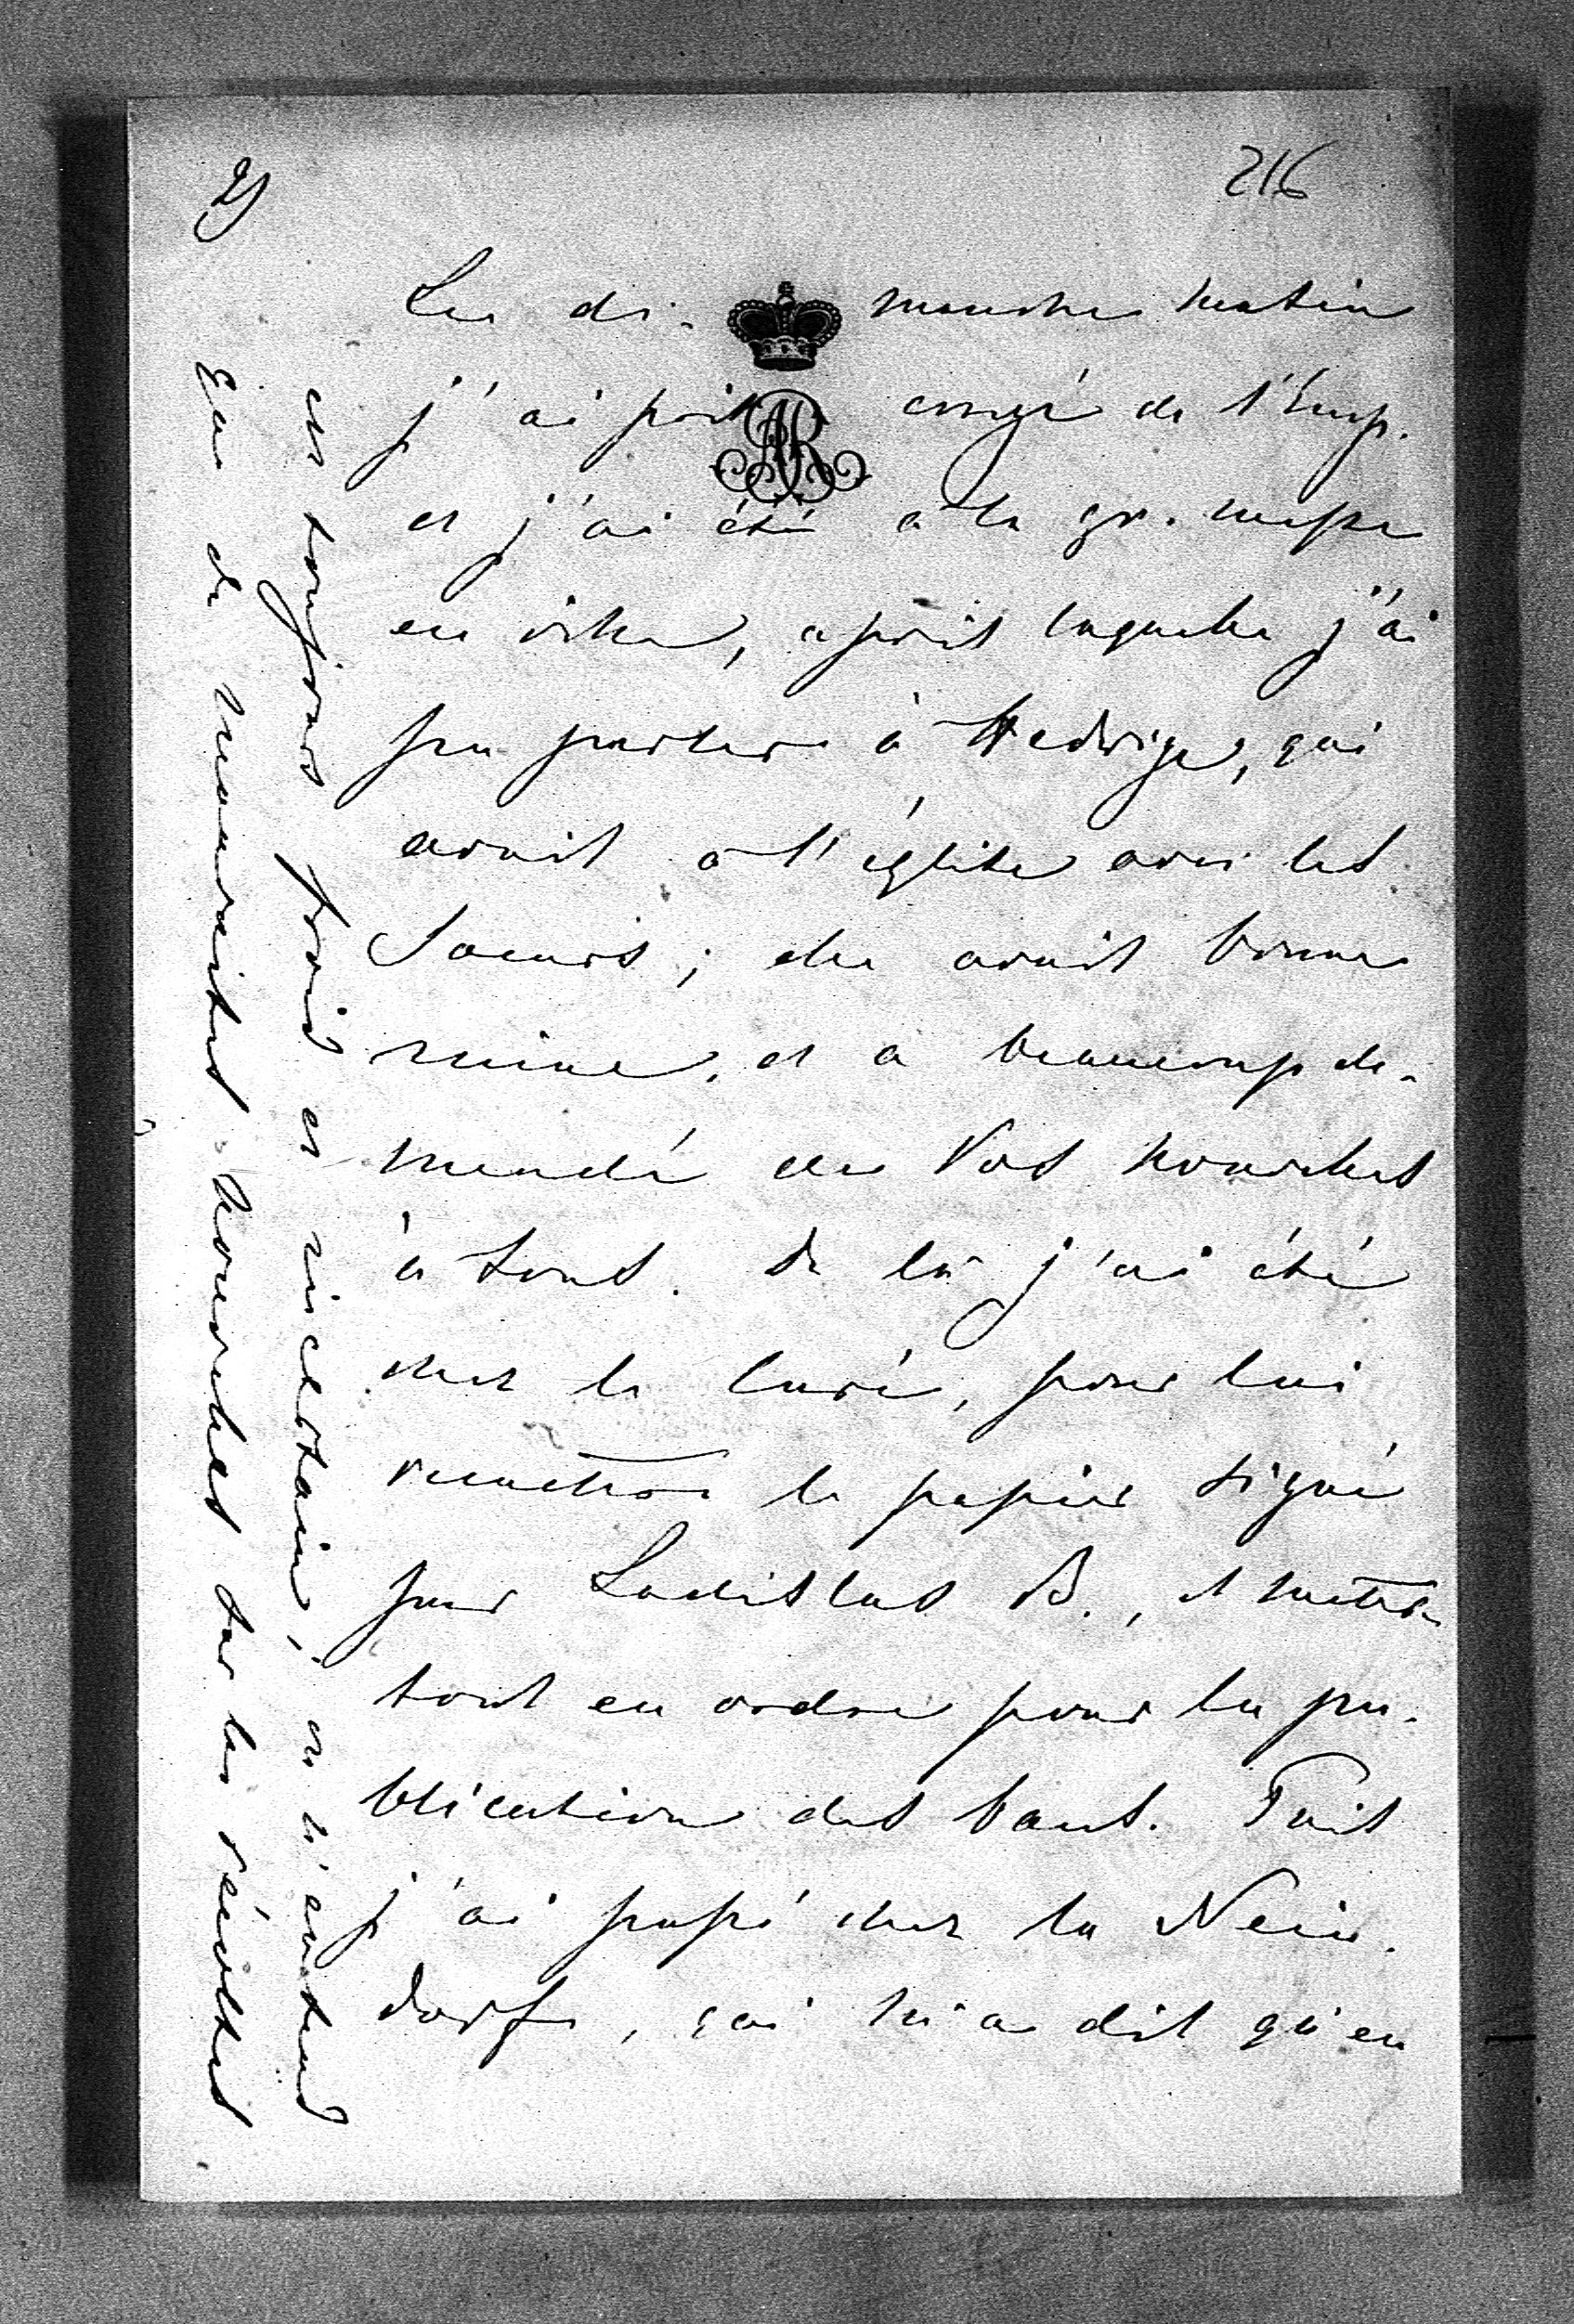 2)
216
Le di- manche matin
j'ai pris congé de l'Emp.
et j'ai été à la gr. messe
en ville, après laquelle j'ai
pu parler à Hedwige, qui
avait à l'église avec les
Soeurs; elle avait bonne
mine, et a beaucoup de-
mandé de Vos nouvelles
à tous. De là j'ai été
chez le curé, pour lui
remettre le papier signé
par Ladislas B., et mettre
tout en ordre pour la pu-
blication des bans. Puis
j'ai passé chez la Nein-
dorff, qui m'a dit qu'en
est toujours froid et incertain, on n'entend
que de mauvaises nouvelles sur les récoltes